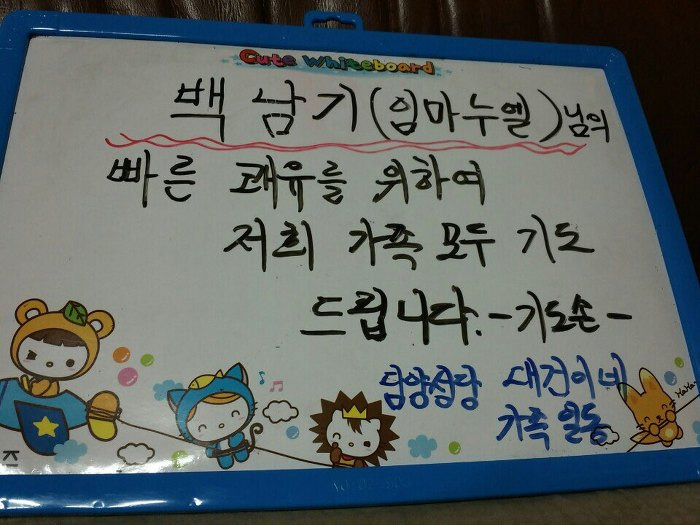 Cute Whiteboard
백 남기(임마누엘)님의
빠른 쾌유를 위하여
저희 가족 모두 기도
드립니다. -기도손-
담양성당 대건이네
가족 일동